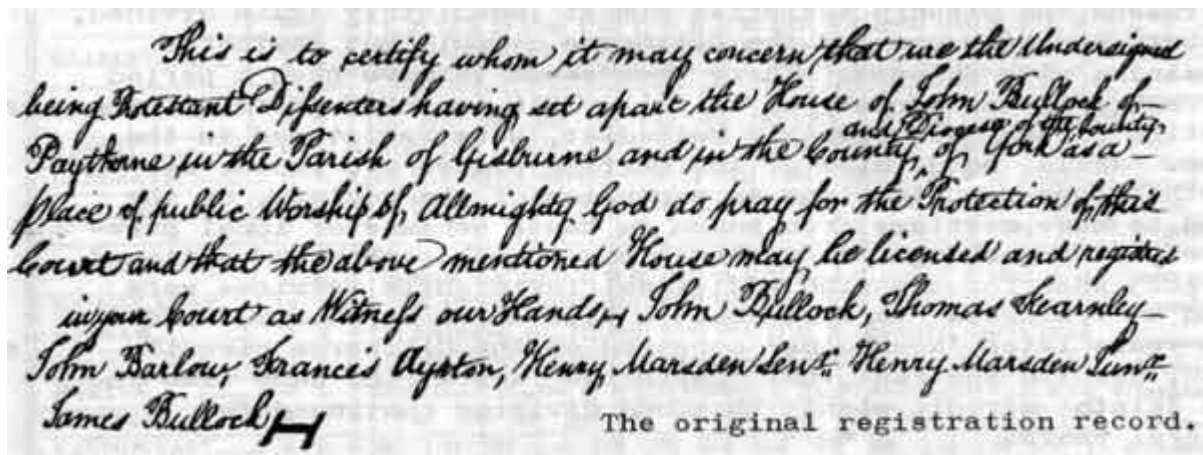 This is to certify whom it may concern that we the Undersigned
being Protestant Dissenters having set apart the House of John Bullock of
and Diocese of the County
Paythorne in the Parish of Gisburne and in the County of York as a
place of public Worship of Allmighty God do pray for the Protection of this
Court and that the above mentioned House may be licensed and registred
in your Court as Witness our Hands John Bullock, Thomas Fearnley
John Barlow, Francis Ayrton, Henry Marsden Senr. Henry Marsden Junr.
James Bullock
The original registration record.